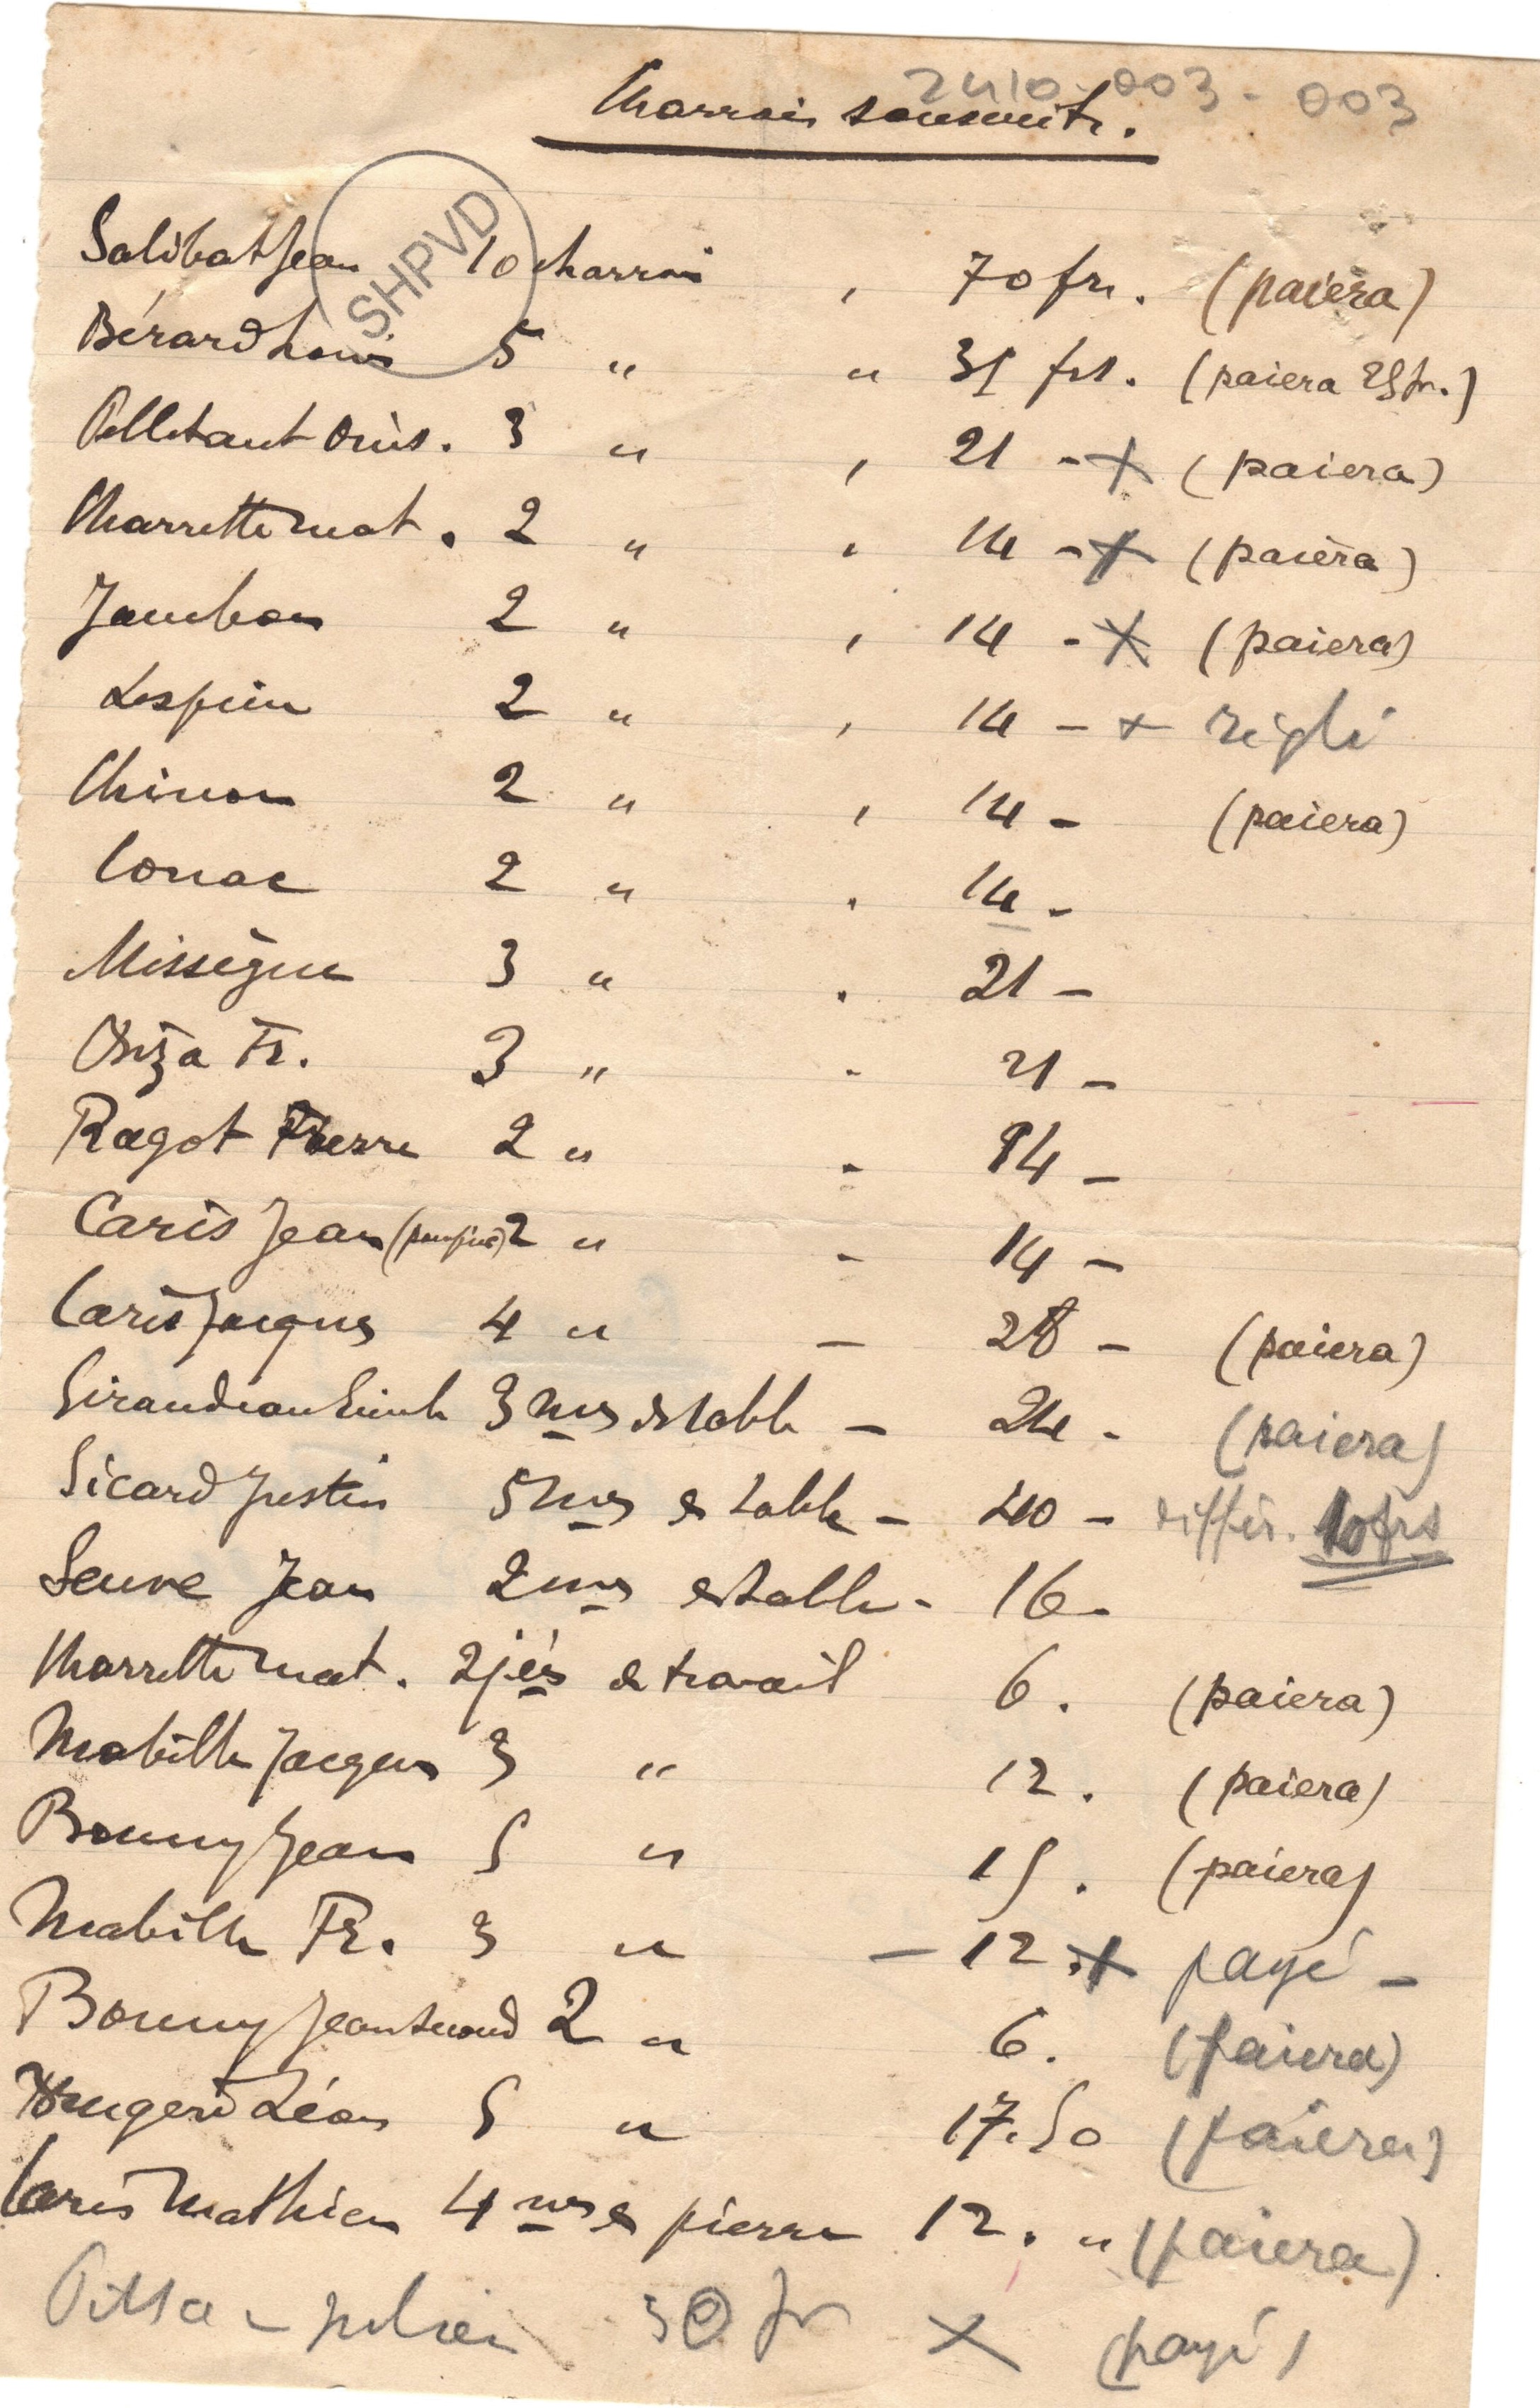 2410-003-003
Charrois souscrits.
SHPVD
Salibat Jean 10 charrois , 70 frs. (paiera)
Bérard Louis 5 " " 35 frs. (paiera 25 fr.)
Pelletant 3 " , 21 - X (paiera)
Charrette Mat. 2 " , 14 - X (paiera)
Jambon 2 " , 14 - X (paiera)
Lespin 2 " , 14 - + réglé
Chinon 2 " , 14 - (paiera)
Conac 2 " . 14 -
Missègue 3 " . 21 -
Fr. 3 " - 21 -
Ragot Pierre 2 " - 14 -
Caris Jean 2 " - 14 -
Caris Jacques 4 " - 28 - (paiera)
Giraudeau 3 mes de table - 24 - (paiera)
Sicard Justin 5 mes de table - 40 - differ. 10 frs
Seuve Jean 2 mes de table - 16 -
Charrette Mat. 2 jées de travail 6 . (paiera)
Mabille Jacques 3 " 12 . (paiera)
Bonny Jean 5 " 15 . (paiera)
Mabille Fr. 3 " - 12 . X payé -
Bonny Jean second 2 " 6 . (paiera)
Léon 5 " 17.50 (paiera)
Caris Mathieu 4 mes de pierre 12 . " (paiera)
Julien 30 fr X (payé)